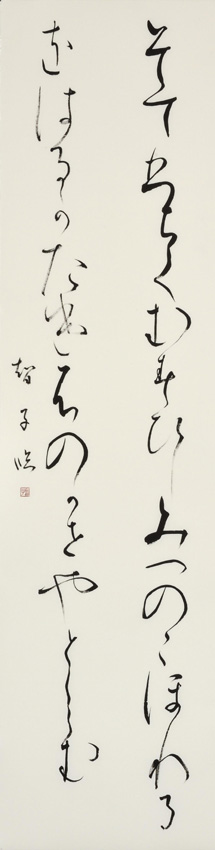 そてひちてむすひしみつのこほれる
をはるたつけふのかせやとくらむ
智子臨